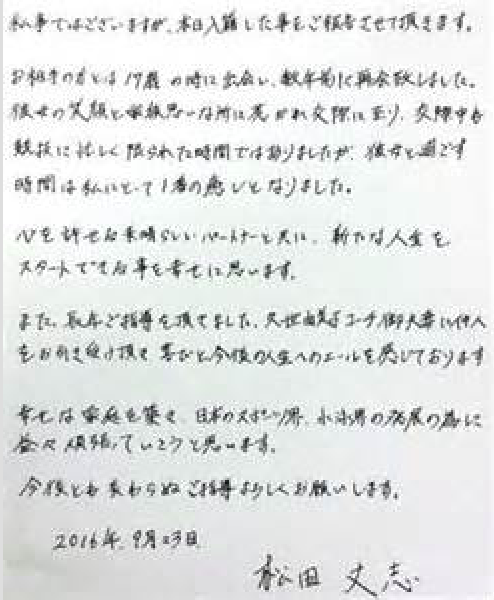 私事ではございますが、本日入籍した事をご報告させて頂きます。
お相手の方とは17歳の時に出会い、数年前に再会致しました。
彼女の笑顔と家族思いな所に惹かれ交際に至り、交際中も
競技に忙しく限られた時間ではありましたが、彼女と過ごす
時間は私にとって1番の癒しとなりました。
心を許せる素晴らしいパートナーと共に、新たな人生を
スタートできる事を幸せに思います。
また、長年ご指導を頂てました、久世由美子コーチ御夫妻に仲人
をお引き受け頂き喜びと今後の人生へのエールを感じております
幸せな家庭を築き、日本のスポーツ界、水泳界の発展の為に
益々頑張っていこうと思います。
今後とも変わらぬご指導よろしくお願いします。
2016年9月23日
松田 丈志